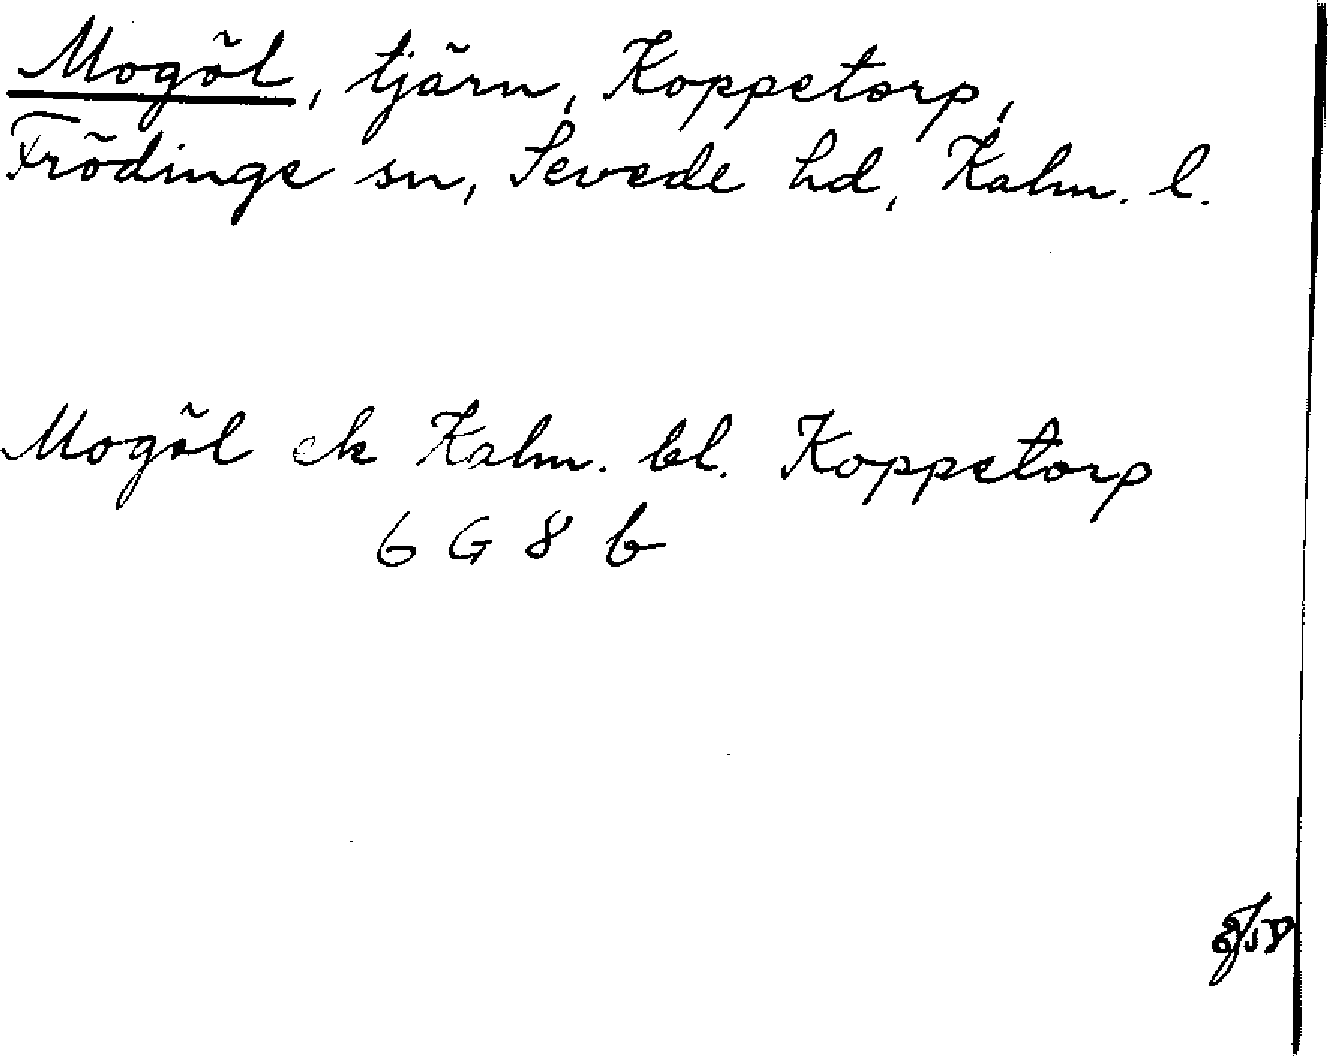 Mogöl, tjärn, Koppetorp,
Frödinge sn, Sevede hd, Kalm. l.
Mogöl ek Kalm. bl. Koppetorp
6 G 8 b